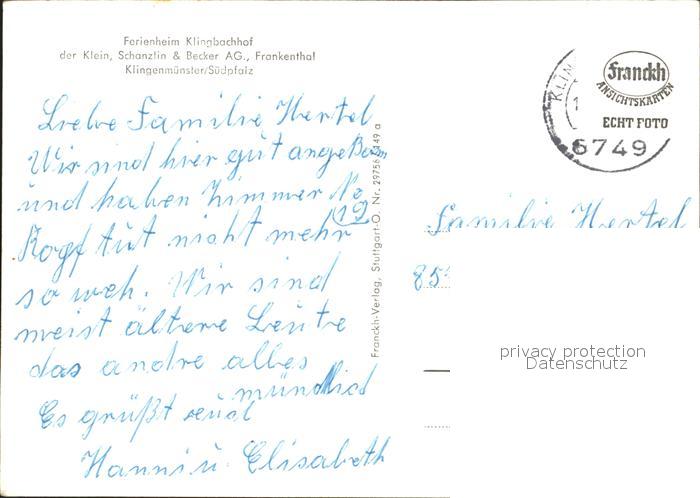 Ferienheim Klingbachhof
der Klein, Schanzlin & Becker AG., Frankenthal
Klingenmünster/Südpfalz
Liebe Familie Hertel
Wir sind hier gut
und haben Zimmer No
19
Kopf tut nicht mehr
so weh. Wir sind
meist ältere Leute
das andre alles
mündlich
Es grüßt
Hanni u. Elisabeth
Franckh-Verlag, Stuttgart-O. Nr. 29756
49 a
KLIN
1
6749
Franckh
ANSICHTSKARTEN
ECHT FOTO
Familie Hertel
85
privacy protection
Datenschutz